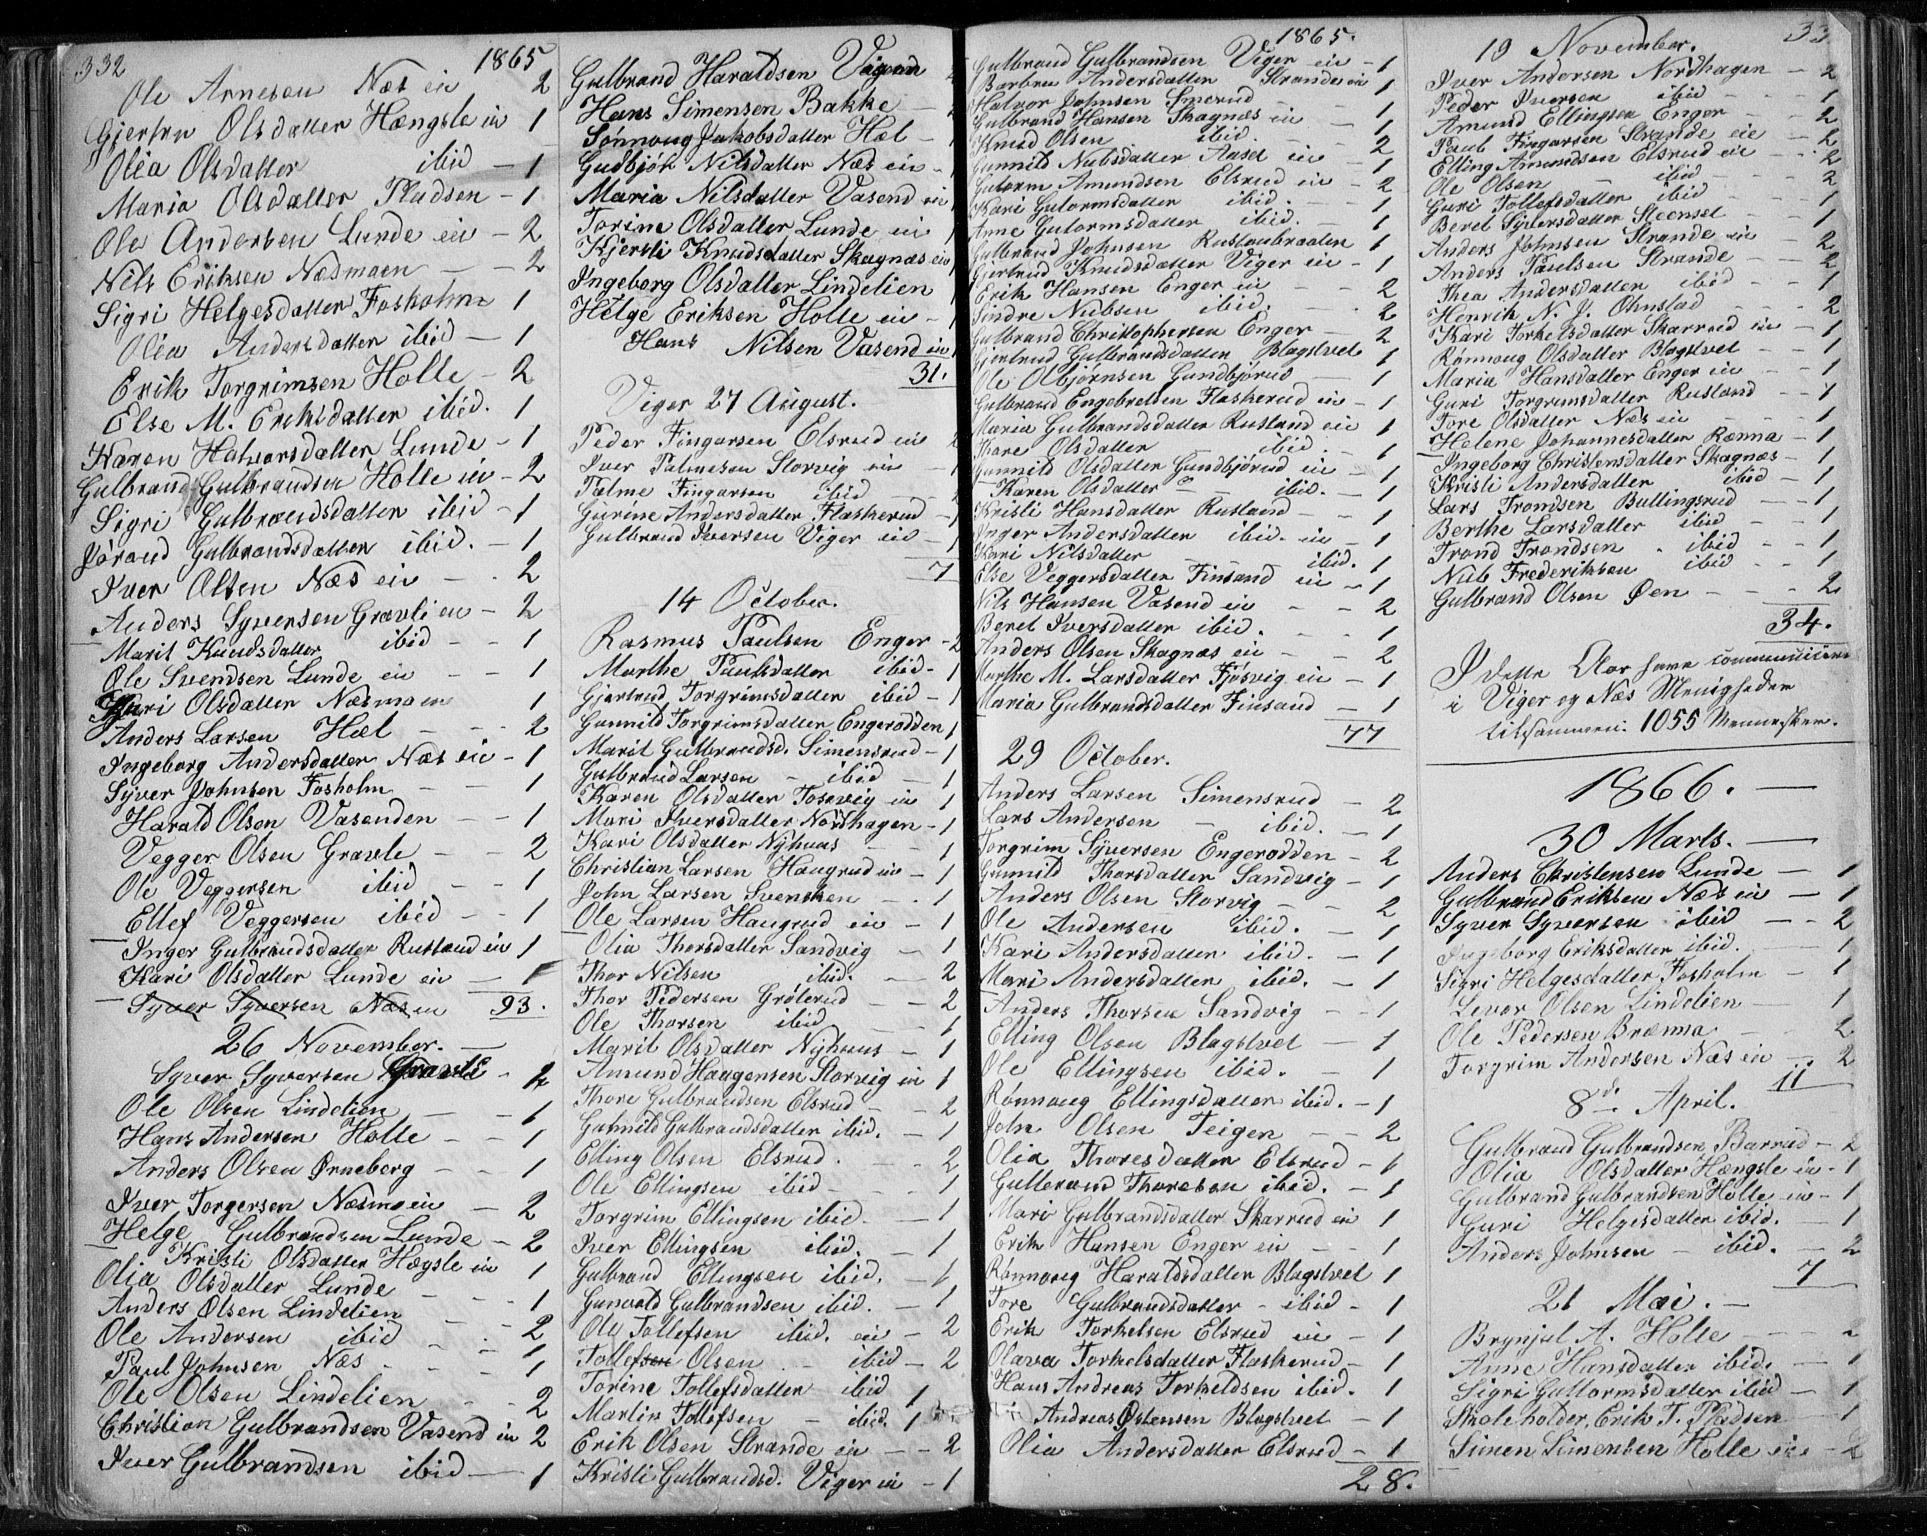 332
1865
Ole Arnesen Næs eie 2
Gjertru Olsdatter Hængsle eie 1
Olea Olsdatter ibid — 1
Maria Olsdatter Pladsen — 1
Ole Andersen Lunde eie — 2
Nils Eriksen Næsmoen — — 2
Sigri Helgesdatter Fosholm 1
Olea Andersdatter ibid — 1
Erik Torgrimsen Holte — 2
Else M. Eriksdatter ibid. 1
Karen Halvorsdatter Lunde — 1
Gulbrand Gulbrandsen Holte eie — 2
Sigri Gulbrandsdatter ibid — 1
Jørand Gulbrandsdatter ibid. — 1
Iver Olsen Næs eie — . 2
Anders Syversen Gravli eie — 2
Marit Knudsdatter ibid — — 1
Ole Svendsen Lunde eie — — 1
Kari Olsdatter Næsmoen 1
Anders Larsen Hæl — — 2
Ingeborg Andersdatter Næs eie — 1
Syver Johnsen Fosholm — — 1
Harald Olsen Vasenden — — 1
Vegger Olsen Gravle — — 2
Ole Veggersen ibid — — 1
Ellef Veggersen ibid — — 1
Inger Gulbrandsdatter Rustand eie 1
Kari Olsdatter Lunde eie — 1
Syver Syversen Næs eie 93.
26 November. —
Syver Syversen Gravli — 2
Ole Olsen Lindelien — — 1
Hans Andersen Holte — — 1
Anders Olsen Ørneberg — — 1
Iver Torgersen Næsmoeie — 2
Helge Gulbrandsen Lunde — 2
Kristi Olsdatter Hægsle eie 1
Olia Olsdatter Lunde — — 1
Anders Olsen Lindelien — — 2
Ole Andersen ibid — . 1
Paul Johnsen Næs . — — 1
Ole Olsen Lindelien — — 2
Christian Gulbrandsen Vasend eie 2
Iver Gulbrandsen ibid — 1
Gulbrand Haraldsen Vasend
Hans Simensen Bakke —
Sønnoug Jakobsdatter Hæl —
Gudbjør Nilsdatter Næs eie —
Maria Nilsdatter Vasend eie
Torine Olsdatter Lunde eie 1
Kjersti Knudsdatter Skagnæs eie
Ingeborg Olsdatter Lindelien
Helge Eriksen Holte eie —
Hans Nilsen Vasend eie
31.
Viger 27 August.
Peder Fingarsen Elsrud eie
Iver Palmesen Storvig eie —
Palme Fingarsen ibid —
Gurine Andersdatter Flaskerud — 1
Gulbrand Iversen Viger eie — 1
7
14 October.
Rasmus Paulsen Enger — 2
Marthe Paulsdatter ibid — 1
Gjertrud Torgrimsdatter ibid — 1
Gunnild Torgrimsdatter Engerodden 1
Marit Gulbrandsd. Simensrud — 1
Gulbrand Larsen — ibid — 1
Karen Olsdatter Fosevig eie — 1
Mari Iversdatter Nordhagen — 1
Kari Olsdatter Nyhuus — — 1
Christian Larsen Haugrud eie — 1
John Larsen Svensken — . 1
Ole Larsen Haugrud eie — 1
Olia Thorsdatter Sandvig — 1
Thor Nilsen ibid. — 2
Thor Pedersen Grølerud — — 2
Ole Thorsen ibid — — 1
Marit Olsdatter Nyhuus — 1
Amund Haagensen Storvig eie 1
Thore Gulbrandsen Elsrud — — 2
Gunnild Gulbrandsdatter ibid. — 1
Elling Olsen Elsrud. — . 2
Ole Ellingsen ibid — — 1
Torgrim Ellingsen ibid. — 1
Iver Ellingsen ibid. — 1
Gulbrand Ellingsen ibid. 1
Gunvald Gulbrandsen ibid. — 1
Ole Tollefsen ibid. eie — 2
Tollefsen Olsen — ibid — 2
Torine Tollefsdatter ibid 1
Martin Tollefsen — ibid. 1
Erik Olsen Strande eie — — 2
Kristi Gulbrandsd. Viger eie — 1
1865.
Gulbrand Gulbrandsen Viger eie — 1
Barbru Andersdatter Strande eie 1
Halvor Johnsen Smerud — — 1
Gulbrand Hansen Skagnæs eie — 1
Knud Olsen ibid. — — 2
Gunnild Nubsdatter Aasel eie — 1
Gutorm Amundsen Elsrud eie — 2
Kari Gutormsdatter ibid. — 1
Anne Gutormsdatter ibid. — 1
Gulbrand Johnsen Rustanbraaten 1
Gjertrud Knudsdatter Viger eie — 1
Erik Hansen Enger eie — — 2
Sindre Nubsen ibid. — . 2
Gulbrand Christophersen Enger — 2
Gjertrud Gulbrandsdatter Blagstvet 1
Ole Olbjørnsen Gundbjørud — 1
Gulbrand Engebretsen Flaskerud eie — 1
Maria Gulbrandsdatter Rustand eie 1
Kare Olsdatter — ibid. — 1
Gunnild Olsdatter Gundbjørud eie — 1
Karen Olsdatter — ibid. — 1
Kristi Hansdatter Rustand — — 1
Inger Andersdatter ibid. eie — 1
Kari Nilsdatter — ibid. 1
Else Veggersdatter Finsand eie — 1
Nils Hansen Vasend eie — — 2
Beret Iversdatter ibid. — — 1
Anders Olsen Skagnæs eie — — 2
Marthe M. Larsdatter Fjøsvig eie — 1
Maria Gulbrandsdatter Finsand — 1
77
29 October.
Anders Larsen Simensrud — 2
Lars Andersen — ibid. — 1
Torgrim Syversen Engerodden — 2
Gunnild Thorsdatter Sandvig — 1
Anders Olsen Storvig — — 2
Ole Andersen ibid. — 1
Kari Andersdatter ibid. — 1
Mari Andersdatter ibid. — 1
Anders Thorsen Sandvig — — 1
Elling Olsen Blagstvet — 1
Ole Ellingsen ibid. — 1
Rønnoug Ellingsdatter ibid. — 1
John Olsen Teigen — — 2
Olia Thoresdatter Elsrud — 1
Gulbrand Thoresen ibid. — 1
Mari Gulbrandsdatter Skarrud eie 1
Erik Hansen Enger eie — — 1
Rønnoug Haraldsdatter Blagstvet 1
Tore Gulbrandsdatter — ibid — 1
Erik Torkelsen Elsrud eie — 1
Olava Torkelsdatter Flaskerud — 1
Hans Andreas Torkeldsen ibid. 1
Andreas Østensen Blagstvet — 1
Olia Andersdatter Elsrud — 1
28.
33
19 November.
Iver Andersen Nordhagen — 2
Peder Iversen ibid — — 1
Amund Ellingsen Enger — — 2
Paul Fingarsen Strande eie — 2
Elling Amundsen Elsrud eie — 2
Ole Olsen — ibid — 2
Guri Tollefsdatter ibid — — 1
Beret Syversdatter Steenset — 1
Anders Johnsen Strande eie — 2
Anders Paulsen Strande — — 2
Thea Andersdatter ibid — — 1
Henrik N. J. Ohnstad — — 2
Kari Torkelsdatter Skarrud eie — 1
Rønnoug Olsdatter Blagstvet — 1
Maria Hansdatter Enger eie — — 1
Guri Torgrimsdatter Rustand — — 1
Tore Olsdatter Næs eie — — 1
Helene Johannesdatter Rænna — 1
Ingeborg Christensdatter Skagnæs — 1
Kristi Andersdatter ibid — 1
Lars Trondsen Bullingsrud — — 1
Berthe Larsdatter ibid — — 1
Trond Trondsen . ibid — — 1
Nub Frederiksen ibid — — 1
Gulbrand Olsen Øen — — — 2
34.
I dette Aar have communiceret
i Viger og Næs Menigheder
tilsammen: 1055 Mennesker.
1866. —
30 Marts. —
Anders Christensen Lunde — 1
Gulbrand Eriksen Næs eie — 1
Syver Syversen ibid — — 2
Ingeborg Eriksdatter ibid. — 1
Sigri Helgesdatter Fosholm — 1
Levor Olsen Lindelien — 1
Ole Pedersen Brænna — — 2
Torgrim Andersen Næs eie — 2
11
8de April.
Gulbrand Gulbrandsen Barrud — 2
Olia Olsdatter Hængsle eie — 1
Gulbrand Gulbrandsen Holte eie — 1
Guri Helgesdatter ibid. — 1
Anders Johnsen — ibid. — 2
7
21 Mai. —
Brynjul A. Holte — — — 2
Anne Hansdatter ibid. — 1
Sigri Guttormsdatter ibid — 1
Skoleholder, Erik T. Pladsen — 1
Simen Simensen Holte eie — 2